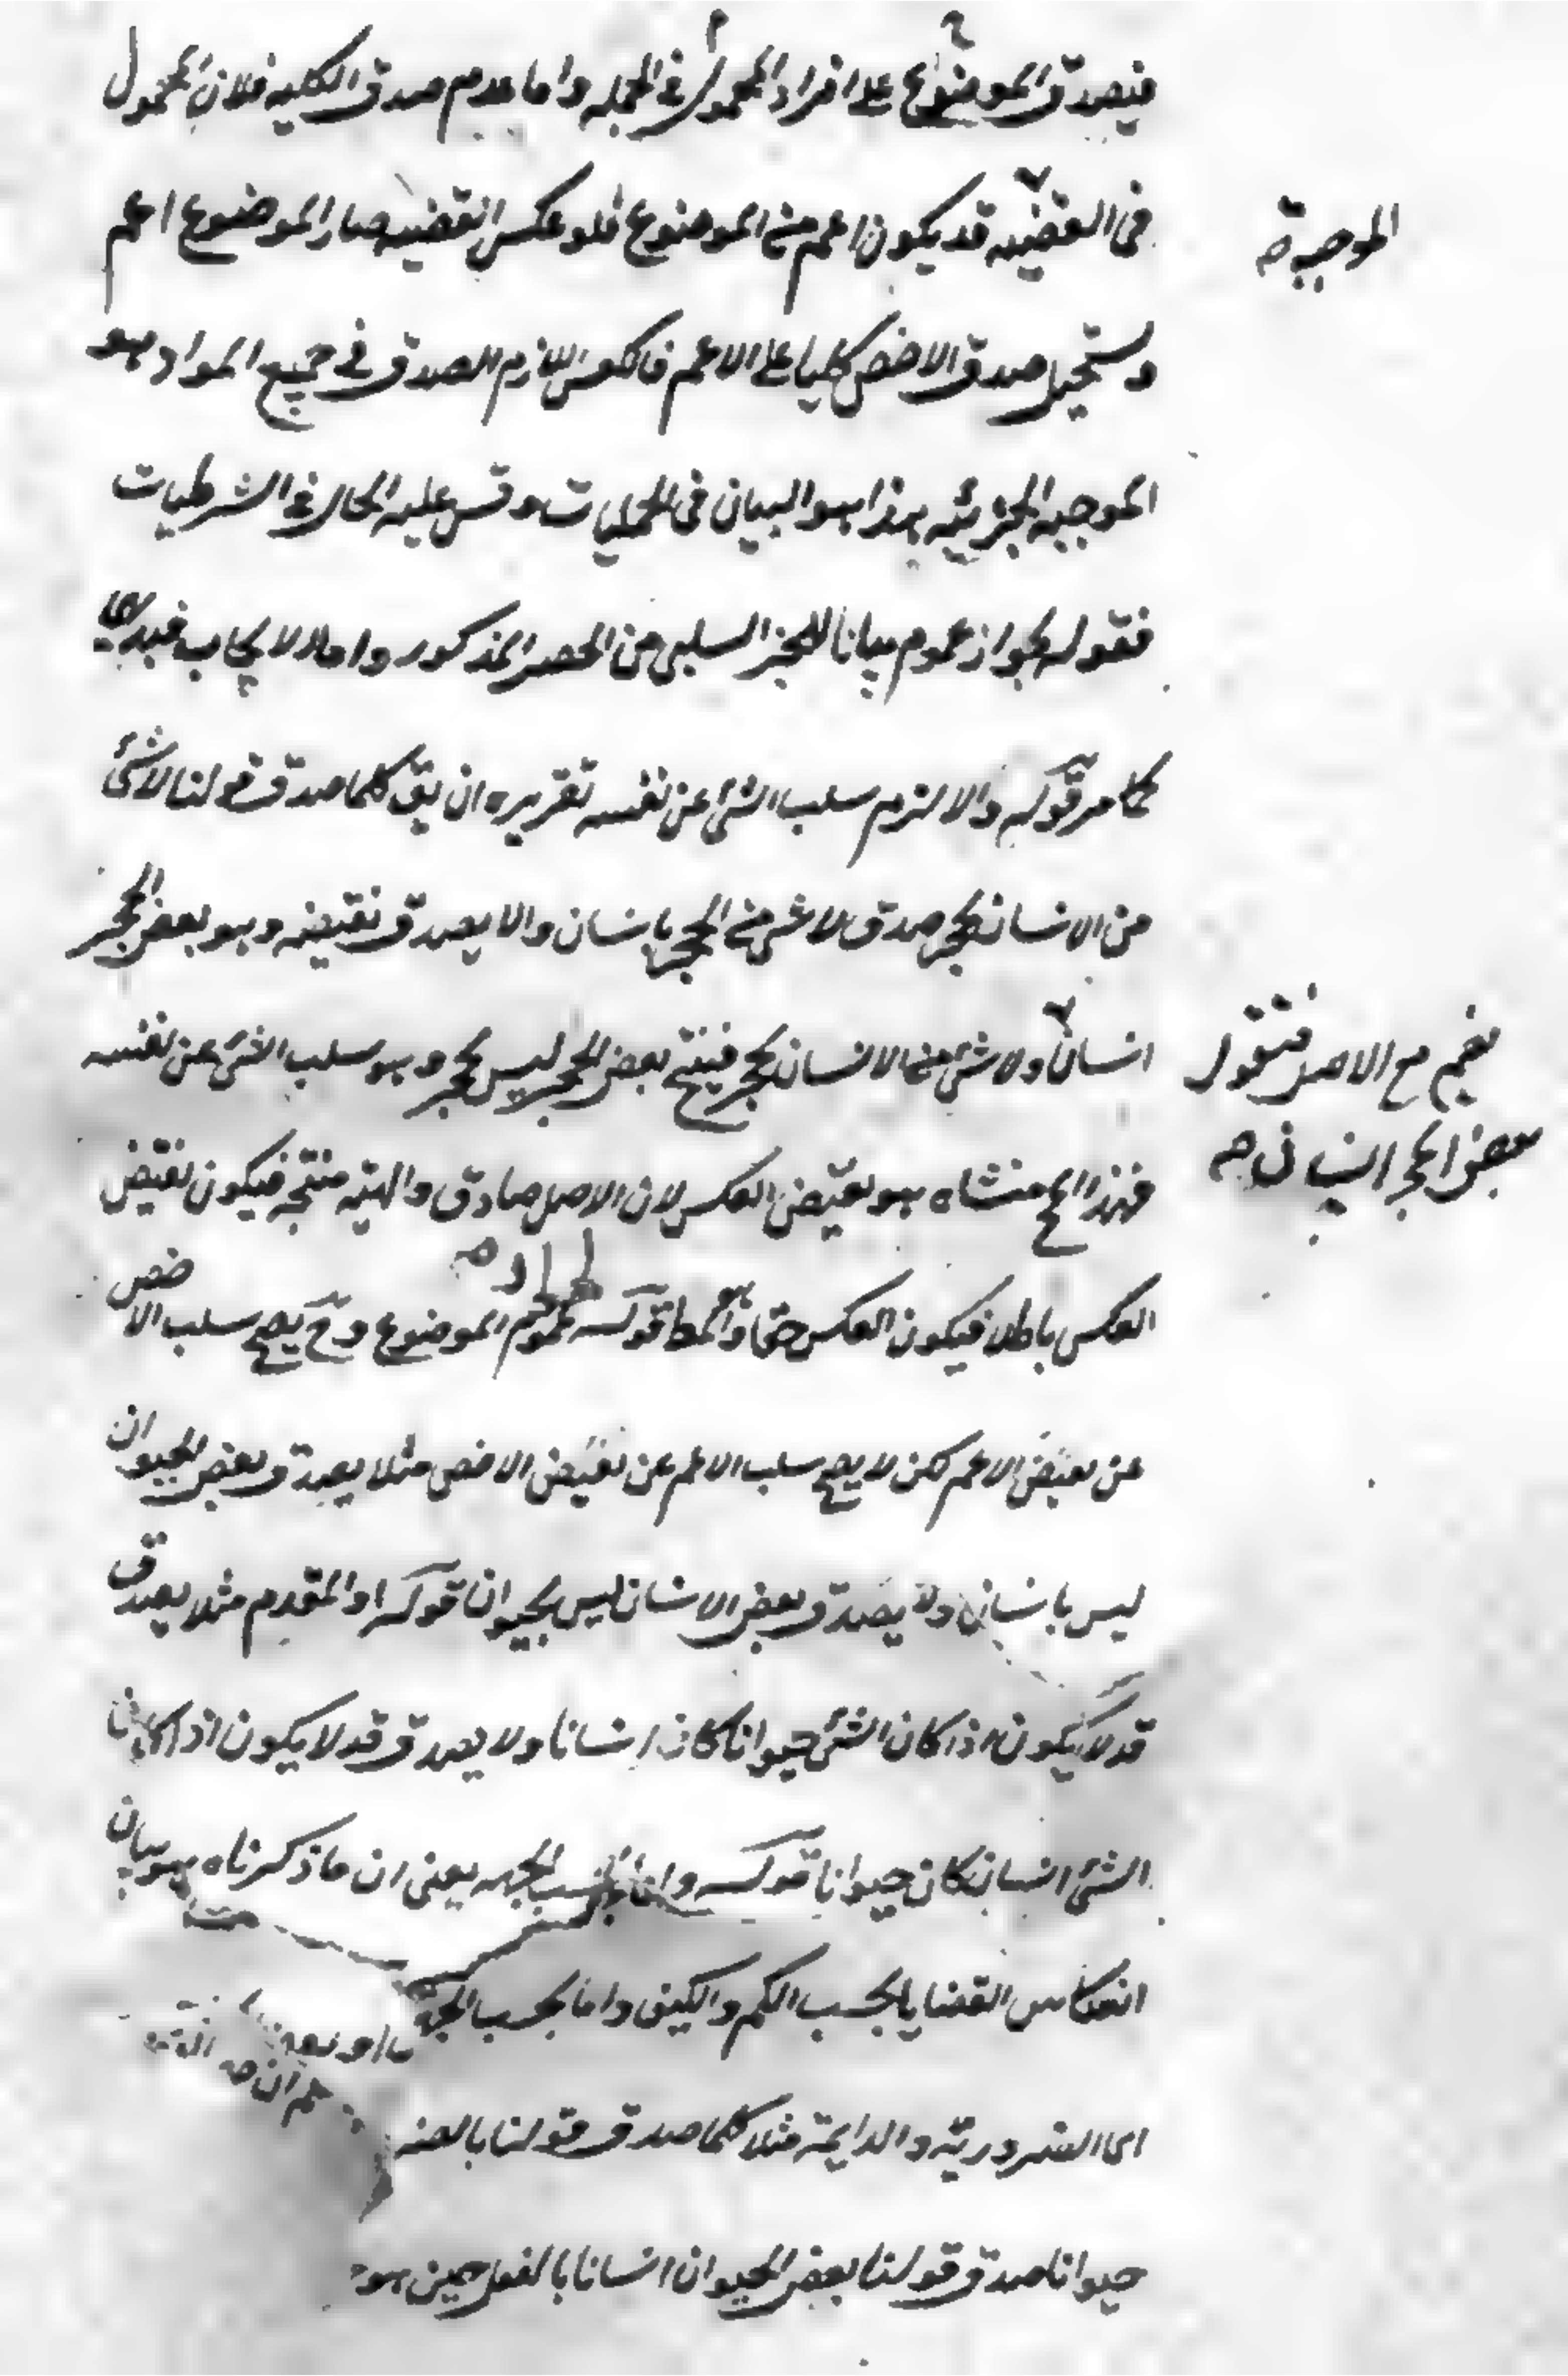 فيصدق الموضوع على افراد المحمول في الجمله واما عدم صدق الكليه فلان المحمول
في القضيه قد يكون اعم من الموضوع فلو عكس القضيه صار الموضوع اعم
الموجبة صح
ويستحيل صدق الاخص كليا على الاعم فالعكس اللازم الصدق في جميع المواد هو
الموجبه الجزئيه هذا هو البيان في الحمليات وقس عليه الحال في الشرطيات
فقوله لجواز عموم بيانا للجزء السلبي من الحصر المذكور واما الايجاب فبديهي
كما مر قوله والا لزم سلب الشئ عن نفسه تقريره ان يق كلما صدق قولنا لا شئ
من الانسان بحجر صدق لا شئ من الحجر بانسان والا يصدق نقيضه وهو بعض الحجر
انسان ولا شئ من الانسان بحجر فينتج بعض الحجر ليس بحجر وهو سلب الشئ عن نفسه
نضم مع الاصل فنقول
بعض الحجر انسان صح
فهذا المح منشاه هو نقيض العكس لان الاصل صادق والهيئه منتجه فيكون نقيض
العكس باطلا فيكون العكس حقا وهو المط قوله عموم الموضوع وح يصح سلب الاخص
عن بعض الاعم لكن لا يصح سلب الاعم عن بعض الاخص مثلا يصدق بعض الحيوان
ليس بانسان ولا يصدق بعض الانسان ليس بحيوان قوله او المقدم مثلا يصدق
قد لا يكون اذا كان الشئ حيوانا كان انسانا ولا يصدق قد لا يكون اذا كان
الشئ انسان كان حيوانا قوله واما بحسب الجهه يعني ان ما ذكرناه هو بيان
انعكاس القضايا بحسب الكم والكيف واما بحسب الجهة
اى الضرورية والدايمة مثلا كلما صدق قولنا بالضر
حيوانا صدق قولنا بعض الحيوان انسانا بالفعل حين هو